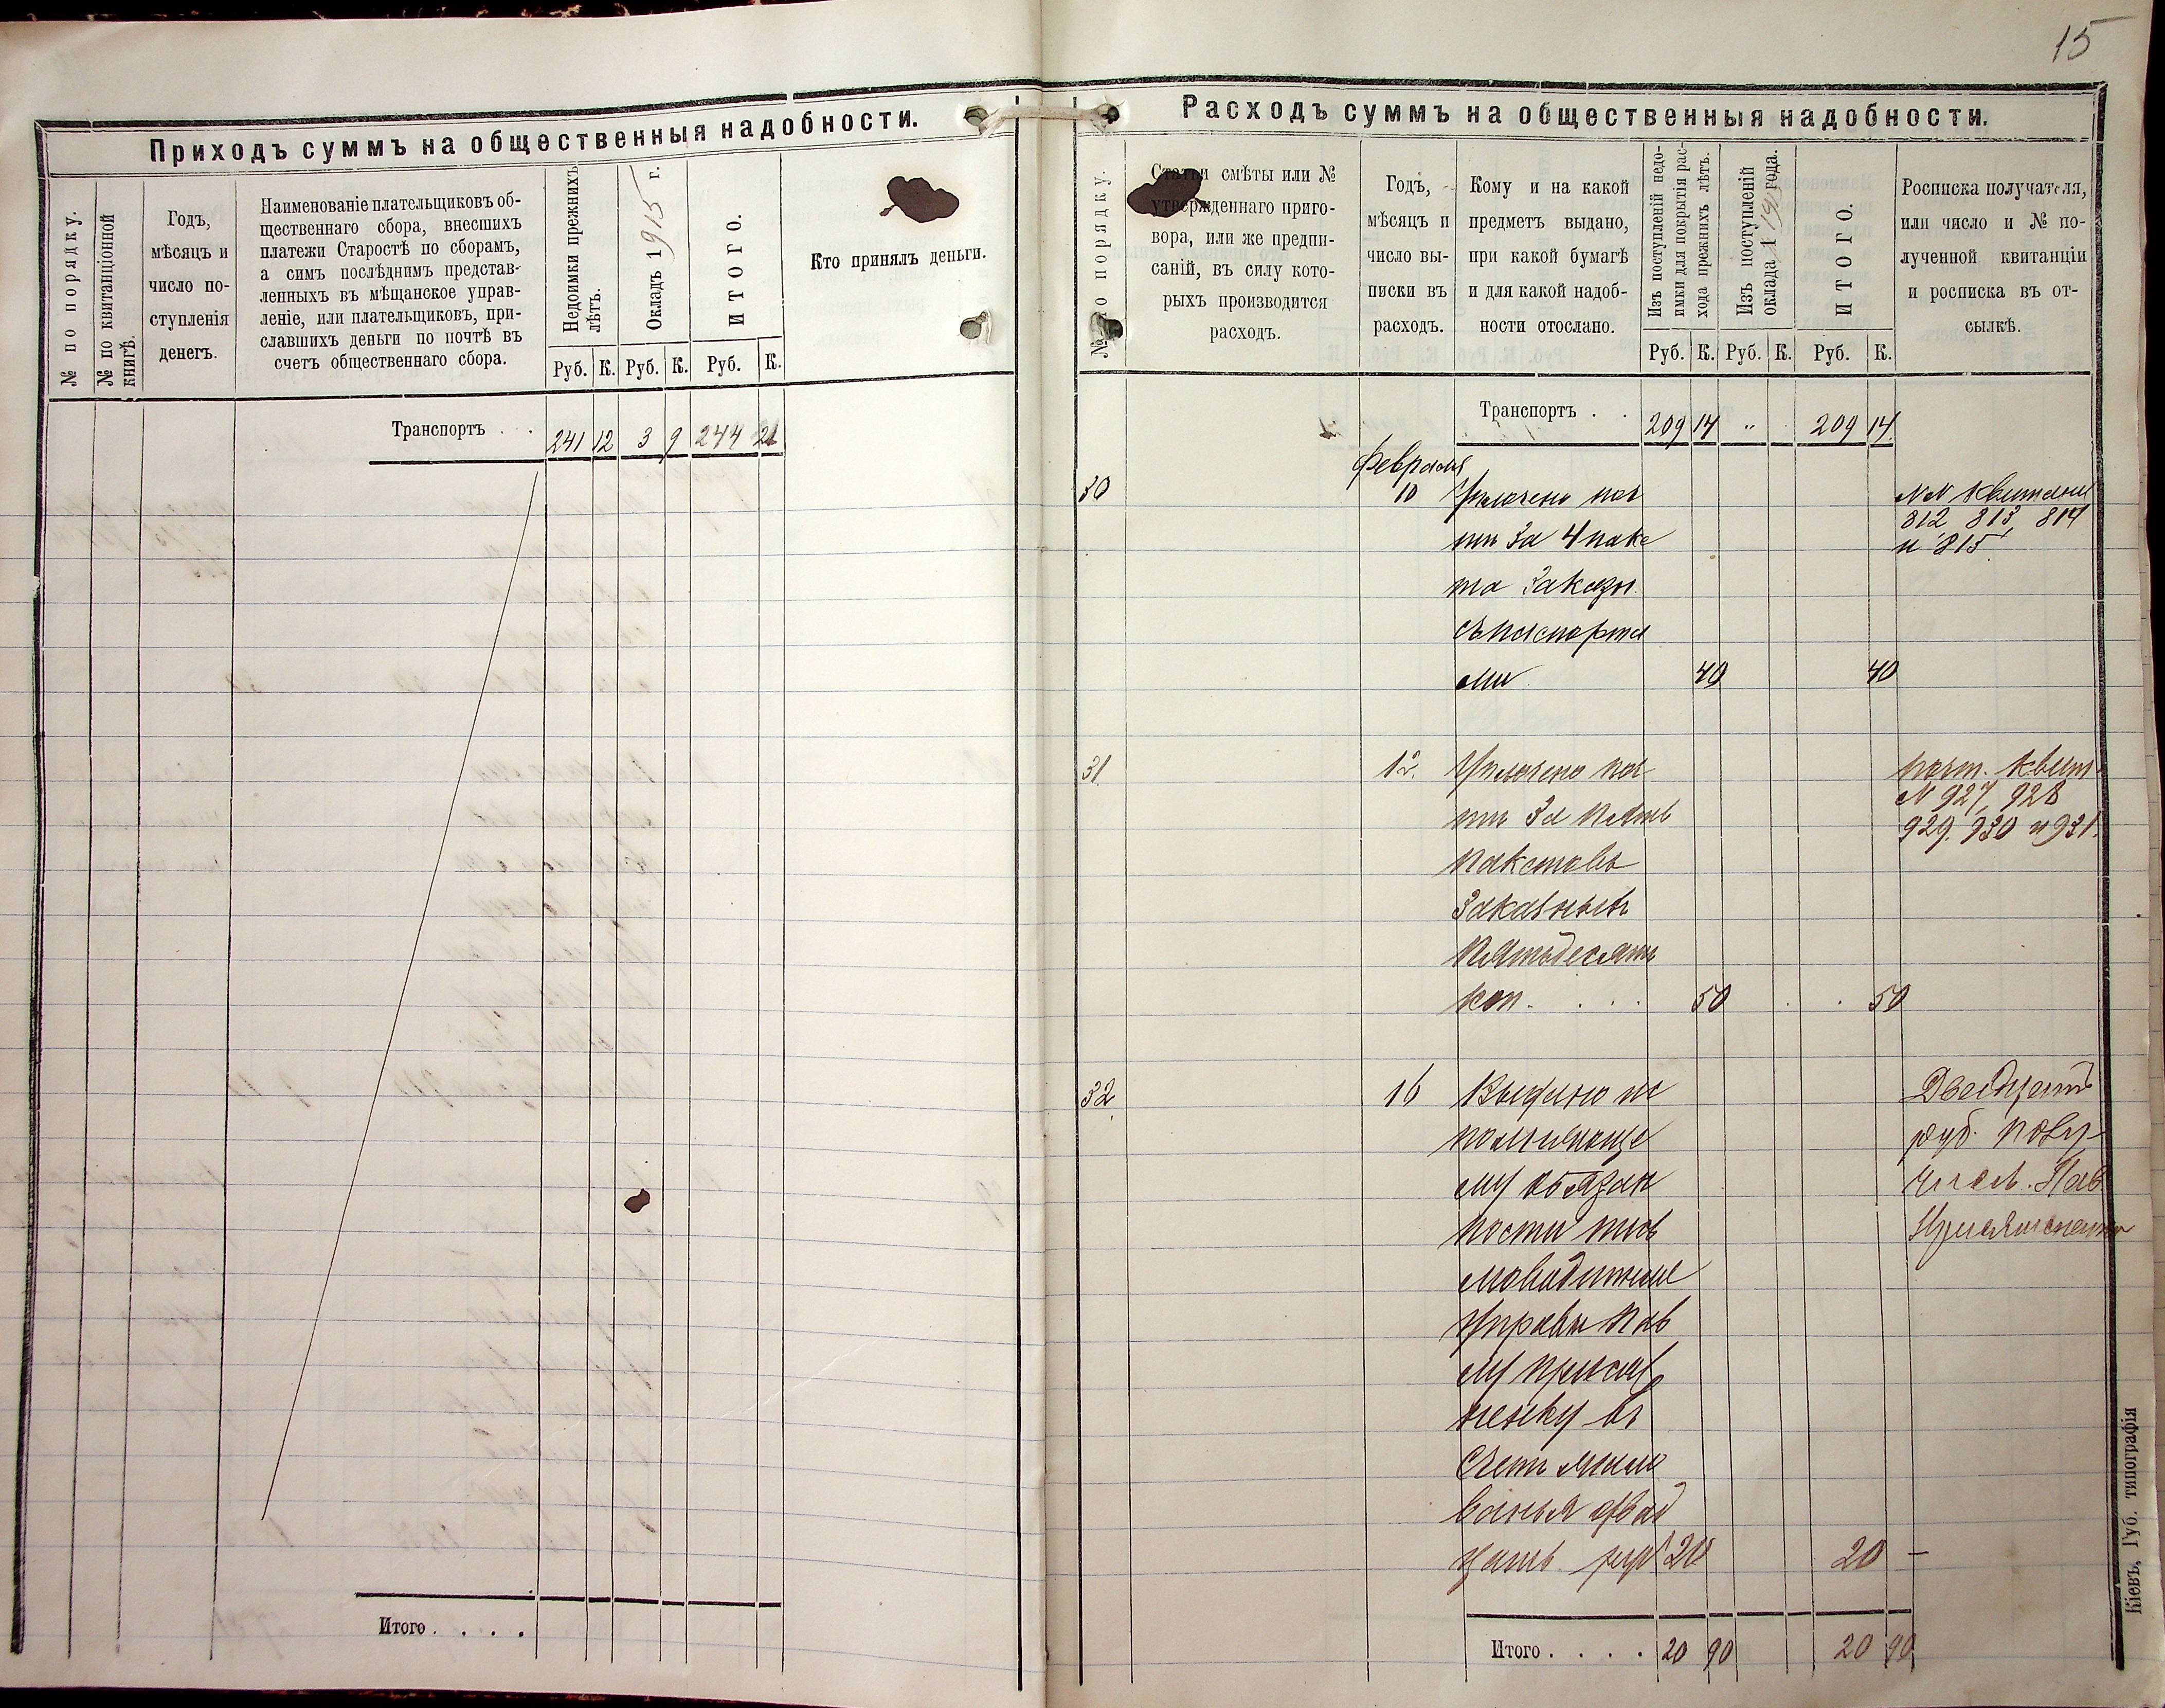 15
Приходъ суммъ на общественныя надобности.
№ по порядку.
№ по квитанціонной
книгѣ.
Годъ,
мѣсяцъ и
число по-
ступленія
денегъ.
Наименованіе плательщиковъ об-
щественнаго сбора, внесшихъ
платежи Старостѣ по сборамъ,
а симъ послѣднимъ представ-
ленныхъ въ мѣщанское управ-
леніе, или плательщиковъ, при-
славшихъ деньги по почтѣ въ
счетъ общественнаго сбора.
Недоимки прежнихъ
лѣтъ.
Окладъ 1915 г.
ИТОГО.
Кто принялъ деньги.
Руб. К. Руб. К. Руб. К.
Транспортъ . . 241 12 3 9 244 21
Итого . . . .
Расходъ суммъ на общественныя надобности.
№ по порядку.
Статьи смѣты или №
утвержденнаго приго-
вора, или же предпи-
саній, въ силу кото-
рыхъ производится
расходъ.
Годъ,
мѣсяцъ и
число вы-
писки въ
расходъ.
Кому и на какой
предметъ выдано,
при какой бумагѣ
и для какой надоб-
ности отослано.
Изъ поступленій недо-
имки для покрытія рас-
хода прежнихъ лѣтъ.
Изъ поступленій
оклада 191 года.
ИТОГО.
Росписка получателя,
или число и № по-
лученной квитанціи
и росписка въ от-
сылкѣ.
Руб. К. Руб. К. Руб. К.
Транспортъ . . 209 14 „ 209 14.
Февраля
30 10 Уплочено поч
ти За 4 паке
та Заказн.
съ паспорта
ми 40 40
NN Квитанціи
812 813, 814
и 815.
31 12. Уплочено поч
ти За пять
пакетовъ
Заказныхъ
пятьдесятъ
коп. . . . 50 . . 50
почт. Квит.
N 927, 928
929. 930 и 931.
32 16 Выдано ис
полняюще
му обязан
ности пись
моводителя
Управы Пав
лу Присяж
ненку въ
Счетъ жало
ванья двад
цать руб 20 20 —
Двадцать
руб. получ
Пав
Итого . . . . 20 90 20 90
Кіевъ, Губ. типографія